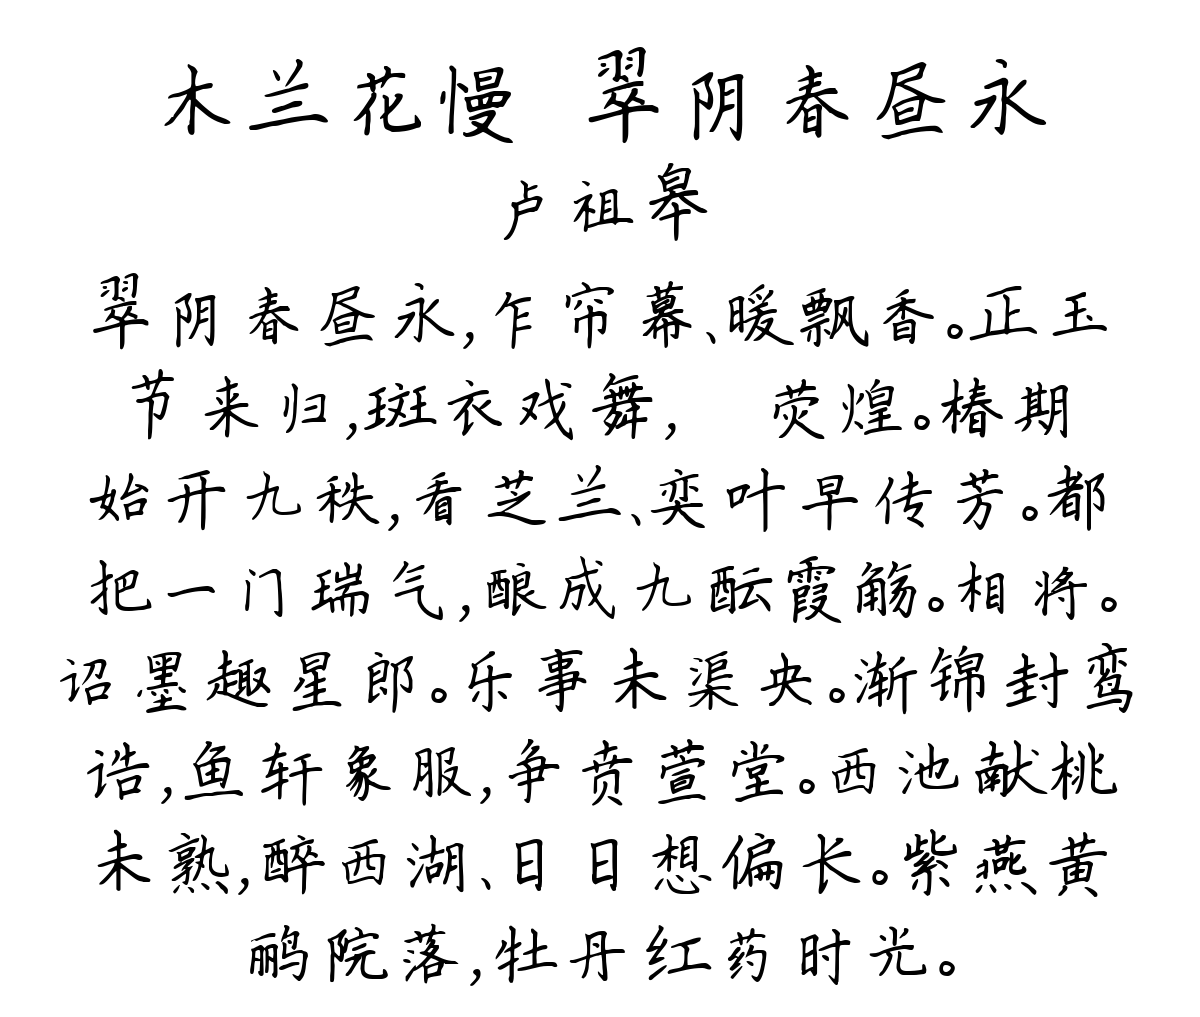 木兰花慢 翠阴春昼永
卢祖皋
翠阴春昼永,乍帘幕、暖飘香。正玉
节来归,斑衣戏舞, 荧煌。椿期
始开九秩,看芝兰、奕叶早传芳。都
把一门瑞气,酿成九酝霞觞。相将。
诏墨趣星郎。乐事未渠央。渐锦封鸾
诰,鱼轩象服,争贲萱堂。西池献桃
未熟,醉西湖、日日想偏长。紫燕黄
鹂院落,牡丹红药时光。